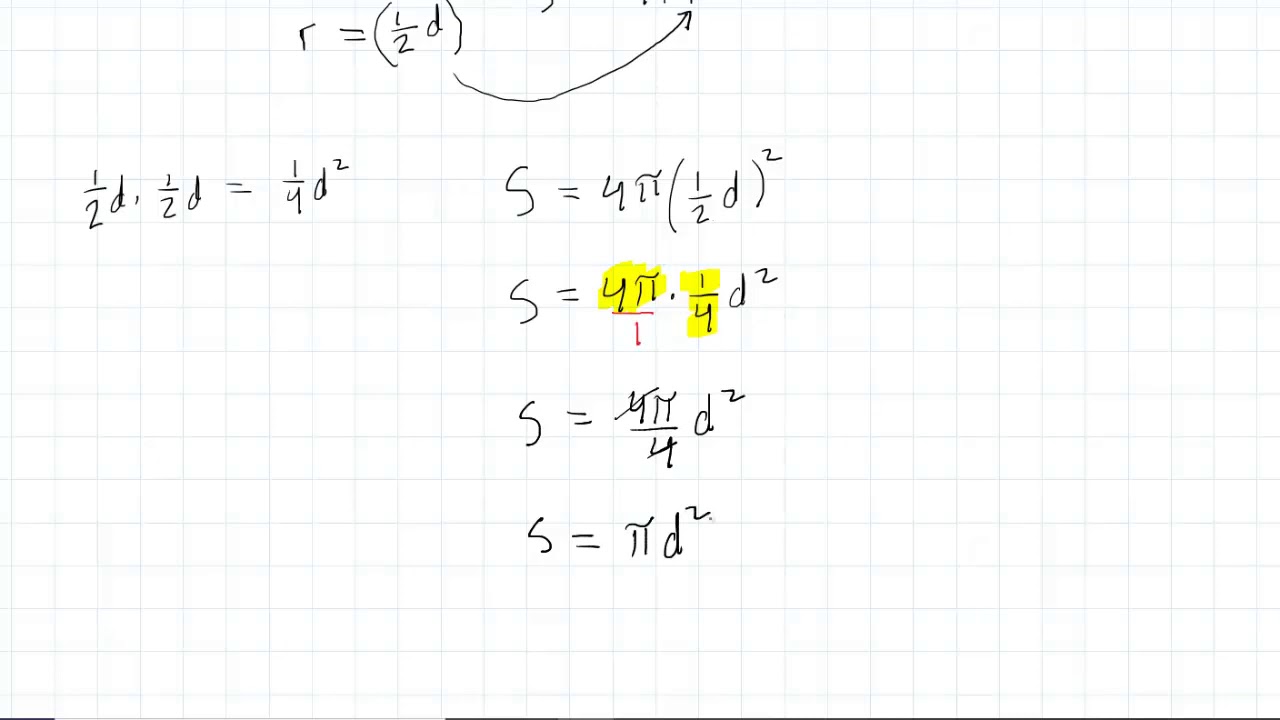 r = (1/2 d)
1/2 d · 1/2 d = 1/4 d²
S = 4π(1/2 d)²
S = 4π/1 · 1/4 d²
S = 4π/4 d²
S = πd²